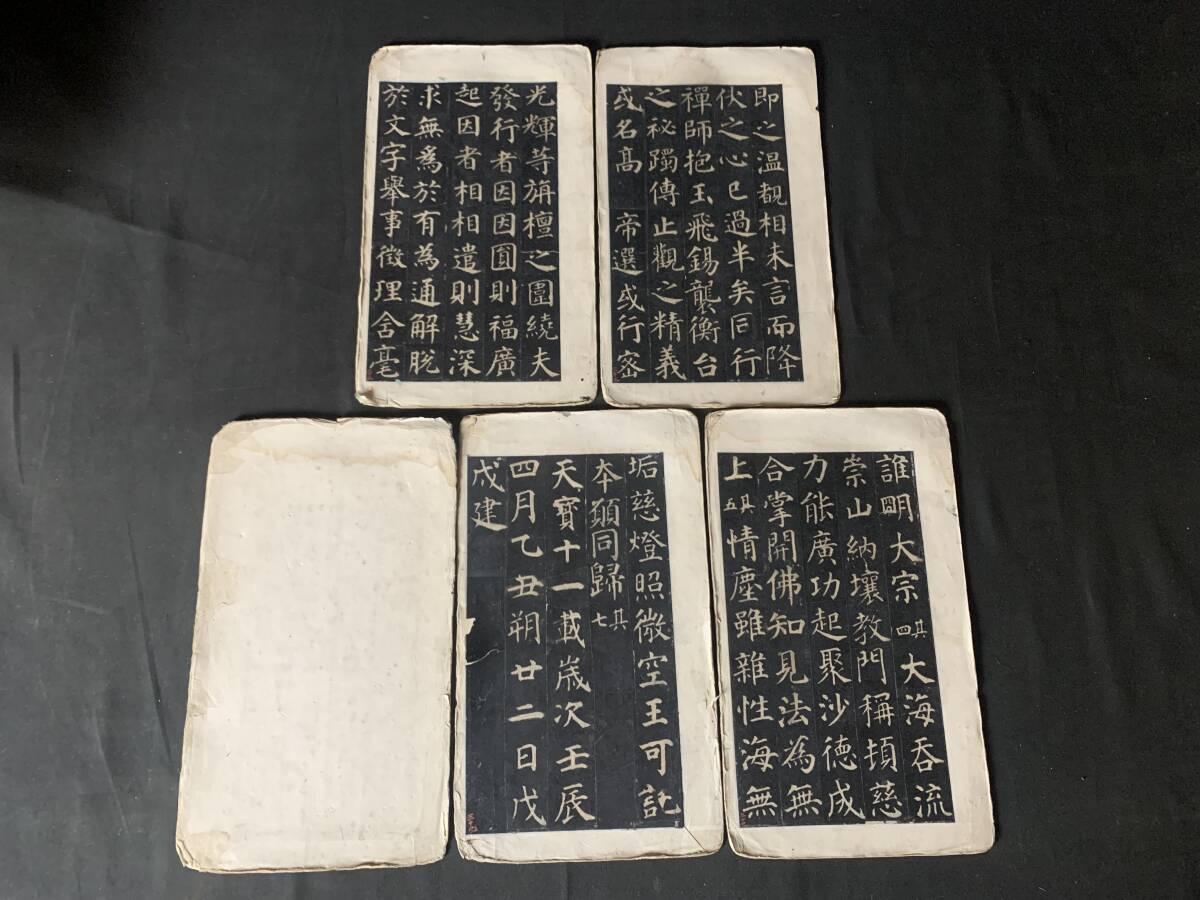 即之温覩相未言而降
伏之心已過半矣同行
禪師抱玉飛錫襲衡台
之祕躅傳止觀之精義
或名高　帝選或行密
光輝等旃檀之圍繞夫
發行者因因圓則福廣
起因者相相遣則慧深
求無爲於有為通解脫
於文字舉事徵理含毫
誰明大宗其四大海吞流
崇山納壤教門稱頓慈
力能廣功起聚沙德成
合掌開佛知見法為無
上其五情塵雖雜性海無
垢慈燈照微空王可託
本願同歸其七
天寶十一載歲次壬辰
四月乙丑朔廿二日戊
戌建